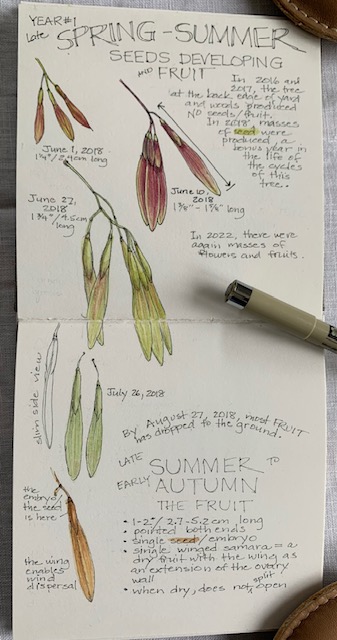 YEAR #1
late SPRING-SUMMER
SEEDS DEVELOPING
AND FRUIT
In 2016 and
2017, the tree
at the back edge of yard
and woods produced
NO seeds/fruit.
In 2018, masses
of seed were
produced, a
bonus year in
the life of
the cycles
of this
tree.
June 1, 2018
long
June 10,
2018
long
June 27,
2018
1 3/4"/4.5cm
long
In 2022, there were
again masses of
flowers and fruits.
slim side view
July 26, 2018
By August 27, 2018, most FRUIT
has dropped to the ground.
LATE SUMMER TO
EARLY AUTUMN
THE FRUIT
the
embryo,
the seed
is here
the wing
enables
wind
dispersal
• 1-2"/2.7-5.2cm long
• pointed both ends
• single seed/embryo
• single winged samara = a
dry fruit with the wing as
an extension of the ovary
wall
• when dry, does not split open